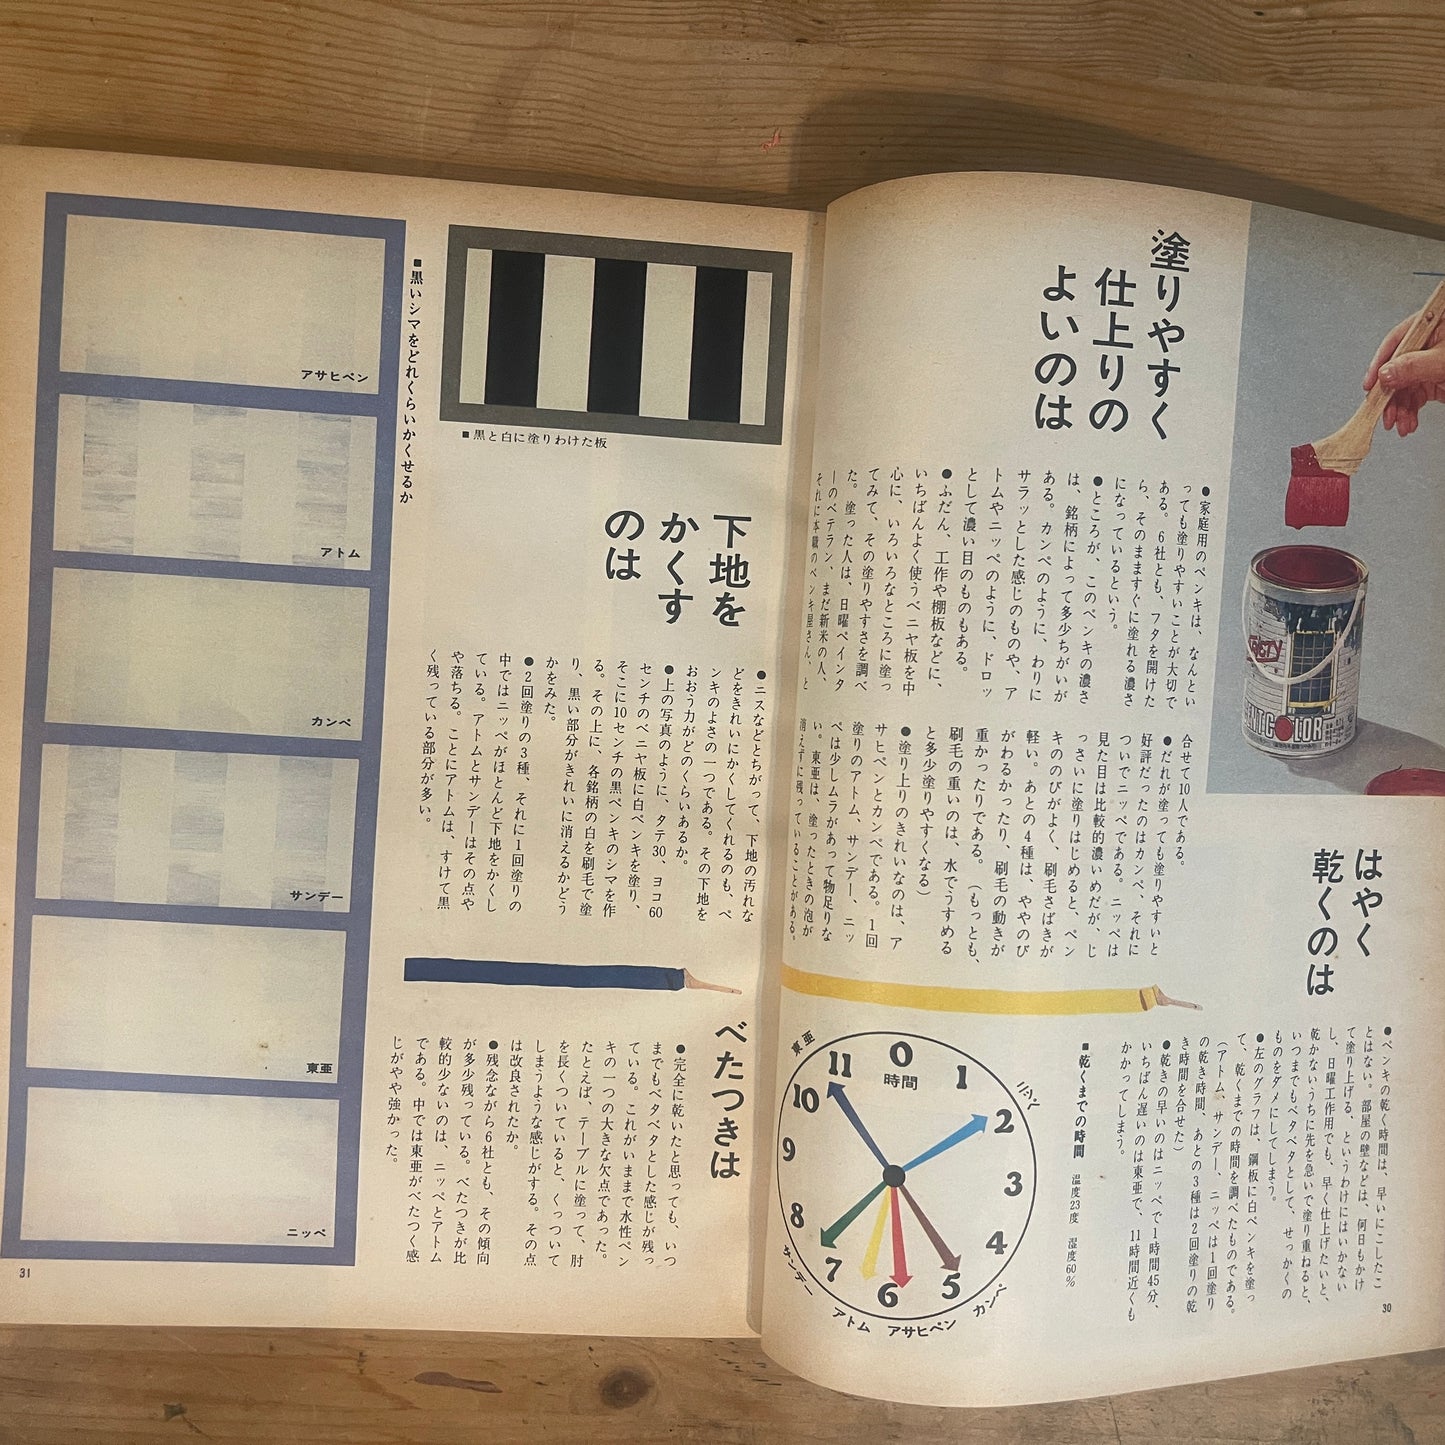 塗りやすく
仕上りの
よいのは
●家庭用のペンキは、なんとい
っても塗りやすいことが大切で
ある。6社とも、フタを開けた
ら、そのまますぐに塗れる濃さ
になっているという。
●ところが、このペンキの濃さ
は、銘柄によって多少ちがいが
ある。カンペのように、わりに
サラッとした感じのものや、ア
トムやニッペのように、ドロッ
として濃い目のものもある。
●ふだん、工作や棚板などに、
いちばんよく使うベニヤ板を中
心に、いろいろなところに塗っ
てみて、その塗りやすさを調べ
た。塗った人は、日曜ペインタ
ーのベテラン、まだ新米の人、
それに本職のペンキ屋さん、と
合せて10人である。
●だれが塗っても塗りやすいと
好評だったのはカンペ、それに
ついでニッペである。ニッペは
見た目は比較的濃いめだが、じ
っさいに塗りはじめると、ペン
キののびがよく、刷毛さばきが
軽い。あとの4種は、ややのび
がわるかったり、刷毛の動きが
重かったりである。（もっとも、
刷毛の重いのは、水でうすめる
と多少塗りやすくなる）
●塗り上りのきれいなのは、ア
サヒペンとカンペである。1回
塗りのアトム、サンデー、ニッ
ペは少しムラがあって物足りな
い。東亜は、塗ったときの泡が
消えずに残っていることがある。
はやく
乾くのは
●ペンキの乾く時間は、早いにこしたこ
とはない。部屋の壁などは、何日もかけ
て塗り上げる、というわけにはいかない
し、日曜工作用でも、早く仕上げたいと、
乾かないうちに先を急いで塗り重ねると、
いつまでもベタベタとして、せっかくの
ものをダメにしてしまう。
●左のグラフは、鋼板に白ペンキを塗っ
て、乾くまでの時間を調べたものである。
（アトム、サンデー、ニッペは1回塗り
の乾き時間、あとの3種は2回塗りの乾
き時間を合せた）
●乾きの早いのはニッペで1時間45分、
いちばん遅いのは東亜で、11時間近くも
かかってしまう。
■乾くまでの時間 温度23度 湿度60%
0
時間
1
2
3
4
5
6
7
8
9
10
11
ニッペ
カンペ
アサヒペン
アトム
サンデー
東亜
TASTY
COLOR
30
■黒と白に塗りわけた板
下地を
かくす
のは
●ニスなどとちがって、下地の汚れな
どをきれいにかくしてくれるのも、ペ
ンキのよさの一つである。その下地を
おおう力がどのくらいあるか。
●上の写真のように、タテ30、ヨコ60
センチのベニヤ板に白ペンキを塗り、
そこに10センチの黒ペンキのシマを作
る。その上に、各銘柄の白を刷毛で塗
り、黒い部分がきれいに消えるかどう
かをみた。
●2回塗りの3種、それに1回塗りの
中ではニッペがほとんど下地をかくし
ている。アトムとサンデーはその点や
や落ちる。ことにアトムは、すけて黒
く残っている部分が多い。
べたつきは
●完全に乾いたと思っても、いつ
までもベタベタとした感じが残っ
ている。これがいままで水性ペン
キの一つの大きな欠点であった。
たとえば、テーブルに塗って、肘
を長くついていると、くっついて
しまうような感じがする。その点
は改良されたか。
●残念ながら6社とも、その傾向
が多少残っている。べたつきが比
較的少ないのは、ニッペとアトム
である。中では東亜がべたつく感
じがやや強かった。
■黒いシマをどれくらいかくせるか
アサヒペン
アトム
カンペ
サンデー
東亜
ニッペ
31